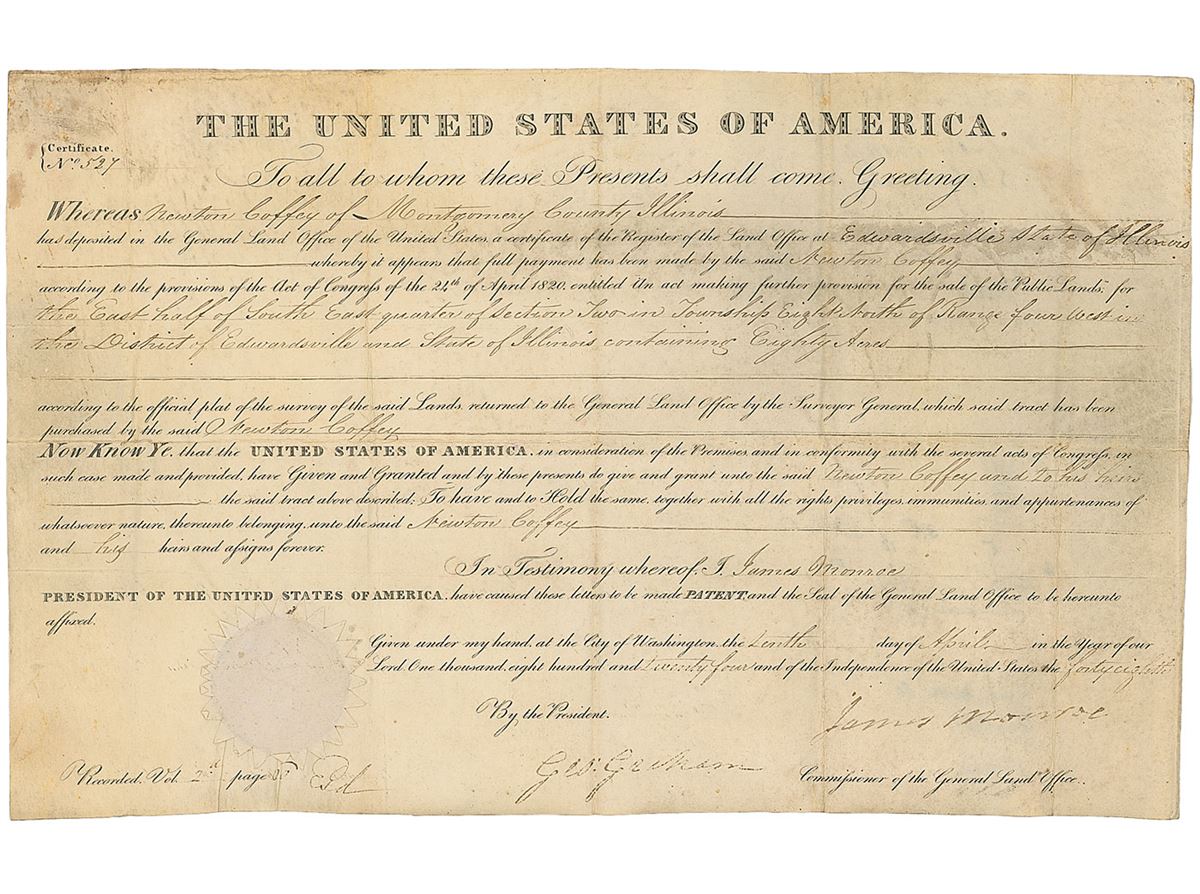 THE UNITED STATES OF AMERICA.
Certificate.
No. 527
To all to whom these Presents shall come, Greeting.
Whereas Newton Coffey of Montgomery County Illinois
has deposited in the General Land Office of the United States, a certificate of the Register of the Land Office at Edwardsville State of Illinois
whereby it appears that full payment has been made by the said Newton Coffey
according to the provisions of the Act of Congress of the 24th of April 1820, entitled An act making further provision for the sale of the Public Lands, for
the East half of South East quarter of Section Two in Township Eight North of Range four West in
the District of Edwardsville and State of Illinois containing Eighty Acres
according to the official plat of the survey of the said Lands, returned to the General Land Office by the Surveyor General, which said tract has been
purchased by the said Newton Coffey
Now Know Ye, that the UNITED STATES OF AMERICA, in consideration of the Premises and in conformity with the several acts of Congress, in
such case made and provided, have Given and Granted and by these presents do give and grant unto the said Newton Coffey and to his heirs
the said tract above described; To have and to Hold the same, together with all the rights privileges, immunities, and appurtenances of
whatsoever nature, thereunto belonging, unto the said Newton Coffey
and his heirs and assigns forever.
In Testimony whereof, I, James Monroe
PRESIDENT OF THE UNITED STATES OF AMERICA, have caused these letters to be made PATENT, and the Seal of the General Land Office to be hereunto
affixed.
Given under my hand, at the City of Washington, the tenth day of April in the Year of our
Lord, One thousand, eight hundred and twenty four and of the Independence of the United States the forty eighth
By the President.
James Monroe
Recorded, Vol. 2d page
Geo: Graham
Commissioner of the General Land Office.